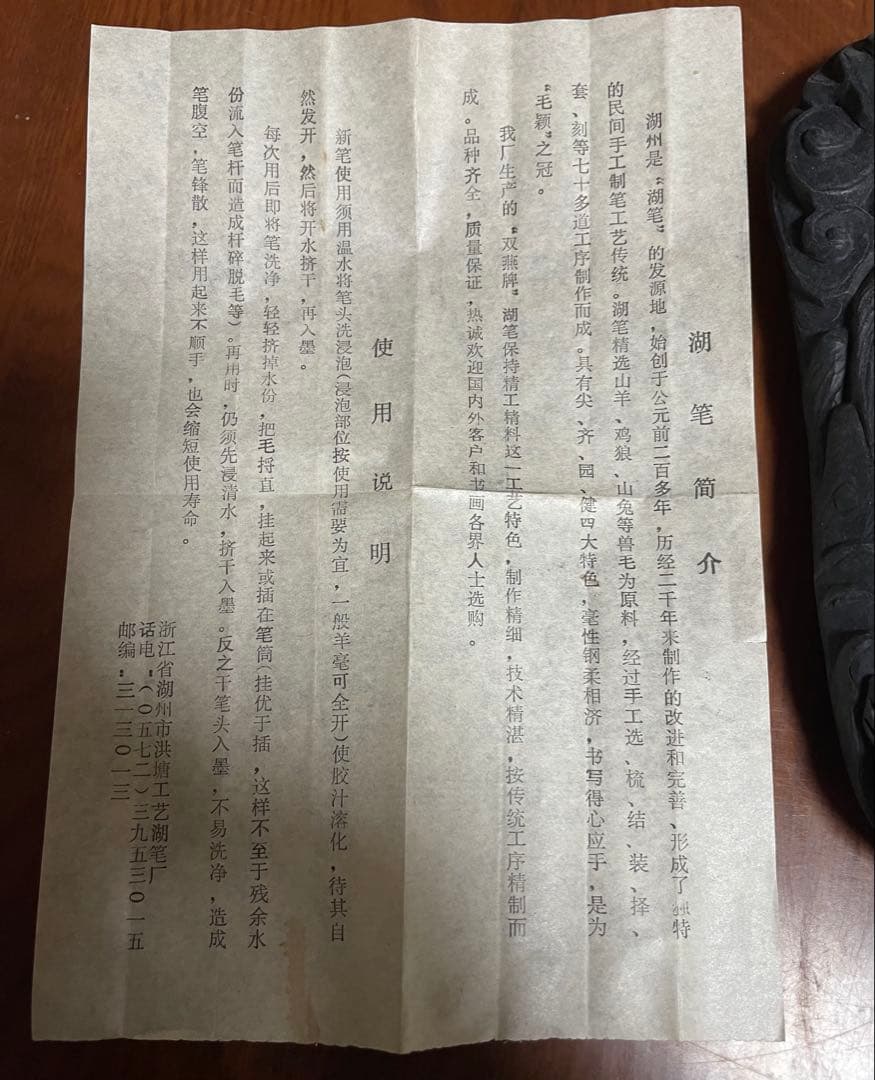 湖笔简介
湖州是“湖笔”的发源地，始创于公元前二百多年，历经二千年来制作的改进和完善、形成了独特
的民间手工制笔工艺传统。湖笔精选山羊、鸡狼、山兔等兽毛为原料，经过手工选、梳、结、装、择、
套、刻等七十多道工序制作而成。具有尖、齐、园、健四大特色，毫性钢柔相济，书写得心应手，是为
“毛颖”之冠。
我厂生产的“双燕牌”湖笔保持精工精料这一工艺特色，制作精细，技术精湛，按传统工序精制而
成。品种齐全，质量保证，热诚欢迎国内外客户和书画各界人士选购。
使用说明
新笔使用须用温水将笔头洗浸泡（浸泡部位按使用需要为宜，一般羊毫可全开）使胶汁溶化，待其自
然发开，然后将开水挤干，再入墨。
每次用后即将笔洗净，轻轻挤掉水份，把毛捋直，挂起来或插在笔筒（挂优于插，这样不至于残余水
份流入笔杆而造成杆碎脱毛等）。再用时，仍须先浸清水，挤干入墨。反之干笔头入墨，不易洗净，造成
笔腹空，笔锋散，这样用起来不顺手，也会缩短使用寿命。
浙江省湖州市洪塘工艺湖笔厂
话电：（〇五七二）三九五三〇一五
邮编：三一三〇一三